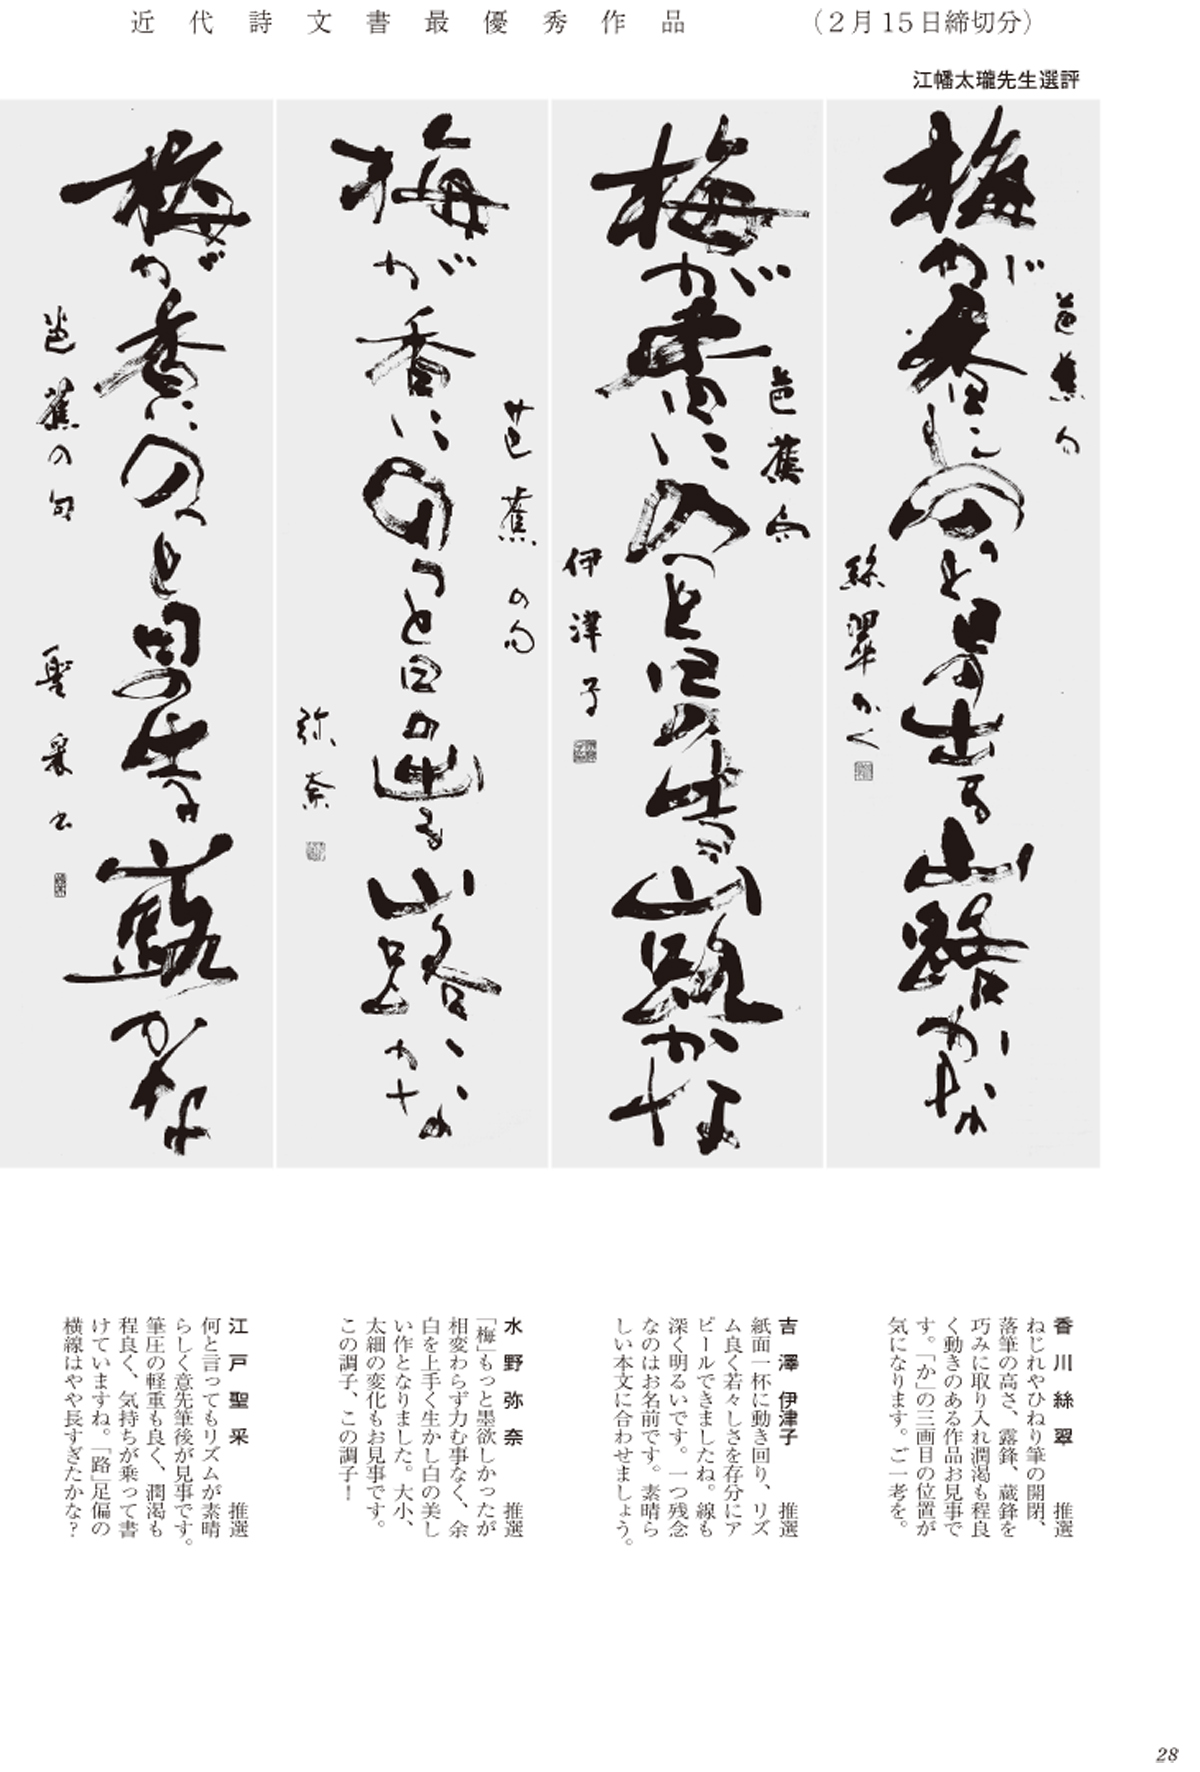 近代詩文書最優秀作品
（２月15日締切分）
江幡太瓏先生選評
梅が香にのっと日の出る山路かな
芭蕉句
絲翠かく
梅が香にのっと日の出る山路かな
芭蕉句
伊津子
梅が香にのっと日の出る山路かな
芭蕉の句
弥奈
梅が香にのっと日の出る山路かな
芭蕉の句
聖采書
香川絲翠 推選
ねじれやひねり筆の開閉、
落筆の高さ、露鋒、蔵鋒を
巧みに取り入れ潤渇も程良
く動きのある作品お見事で
す。「か」の三画目の位置が
気になります。ご一考を。
吉澤伊津子 推選
紙面一杯に動き回り、リズ
ム良く若々しさを存分にア
ピールできましたね。線も
深く明るいです。一つ残念
なのはお名前です。素晴ら
しい本文に合わせましょう。
水野弥奈 推選
「梅」もっと墨欲しかったが
相変わらず力む事なく、余
白を上手く生かし白の美し
い作となりました。大小、
太細の変化もお見事です。
この調子、この調子！
江戸聖采 推選
何と言ってもリズムが素晴
らしく意先筆後が見事です。
筆圧の軽重も良く、潤渇も
程良く、気持ちが乗って書
けていますね。「路」足偏の
横線はやや長すぎたかな？
28